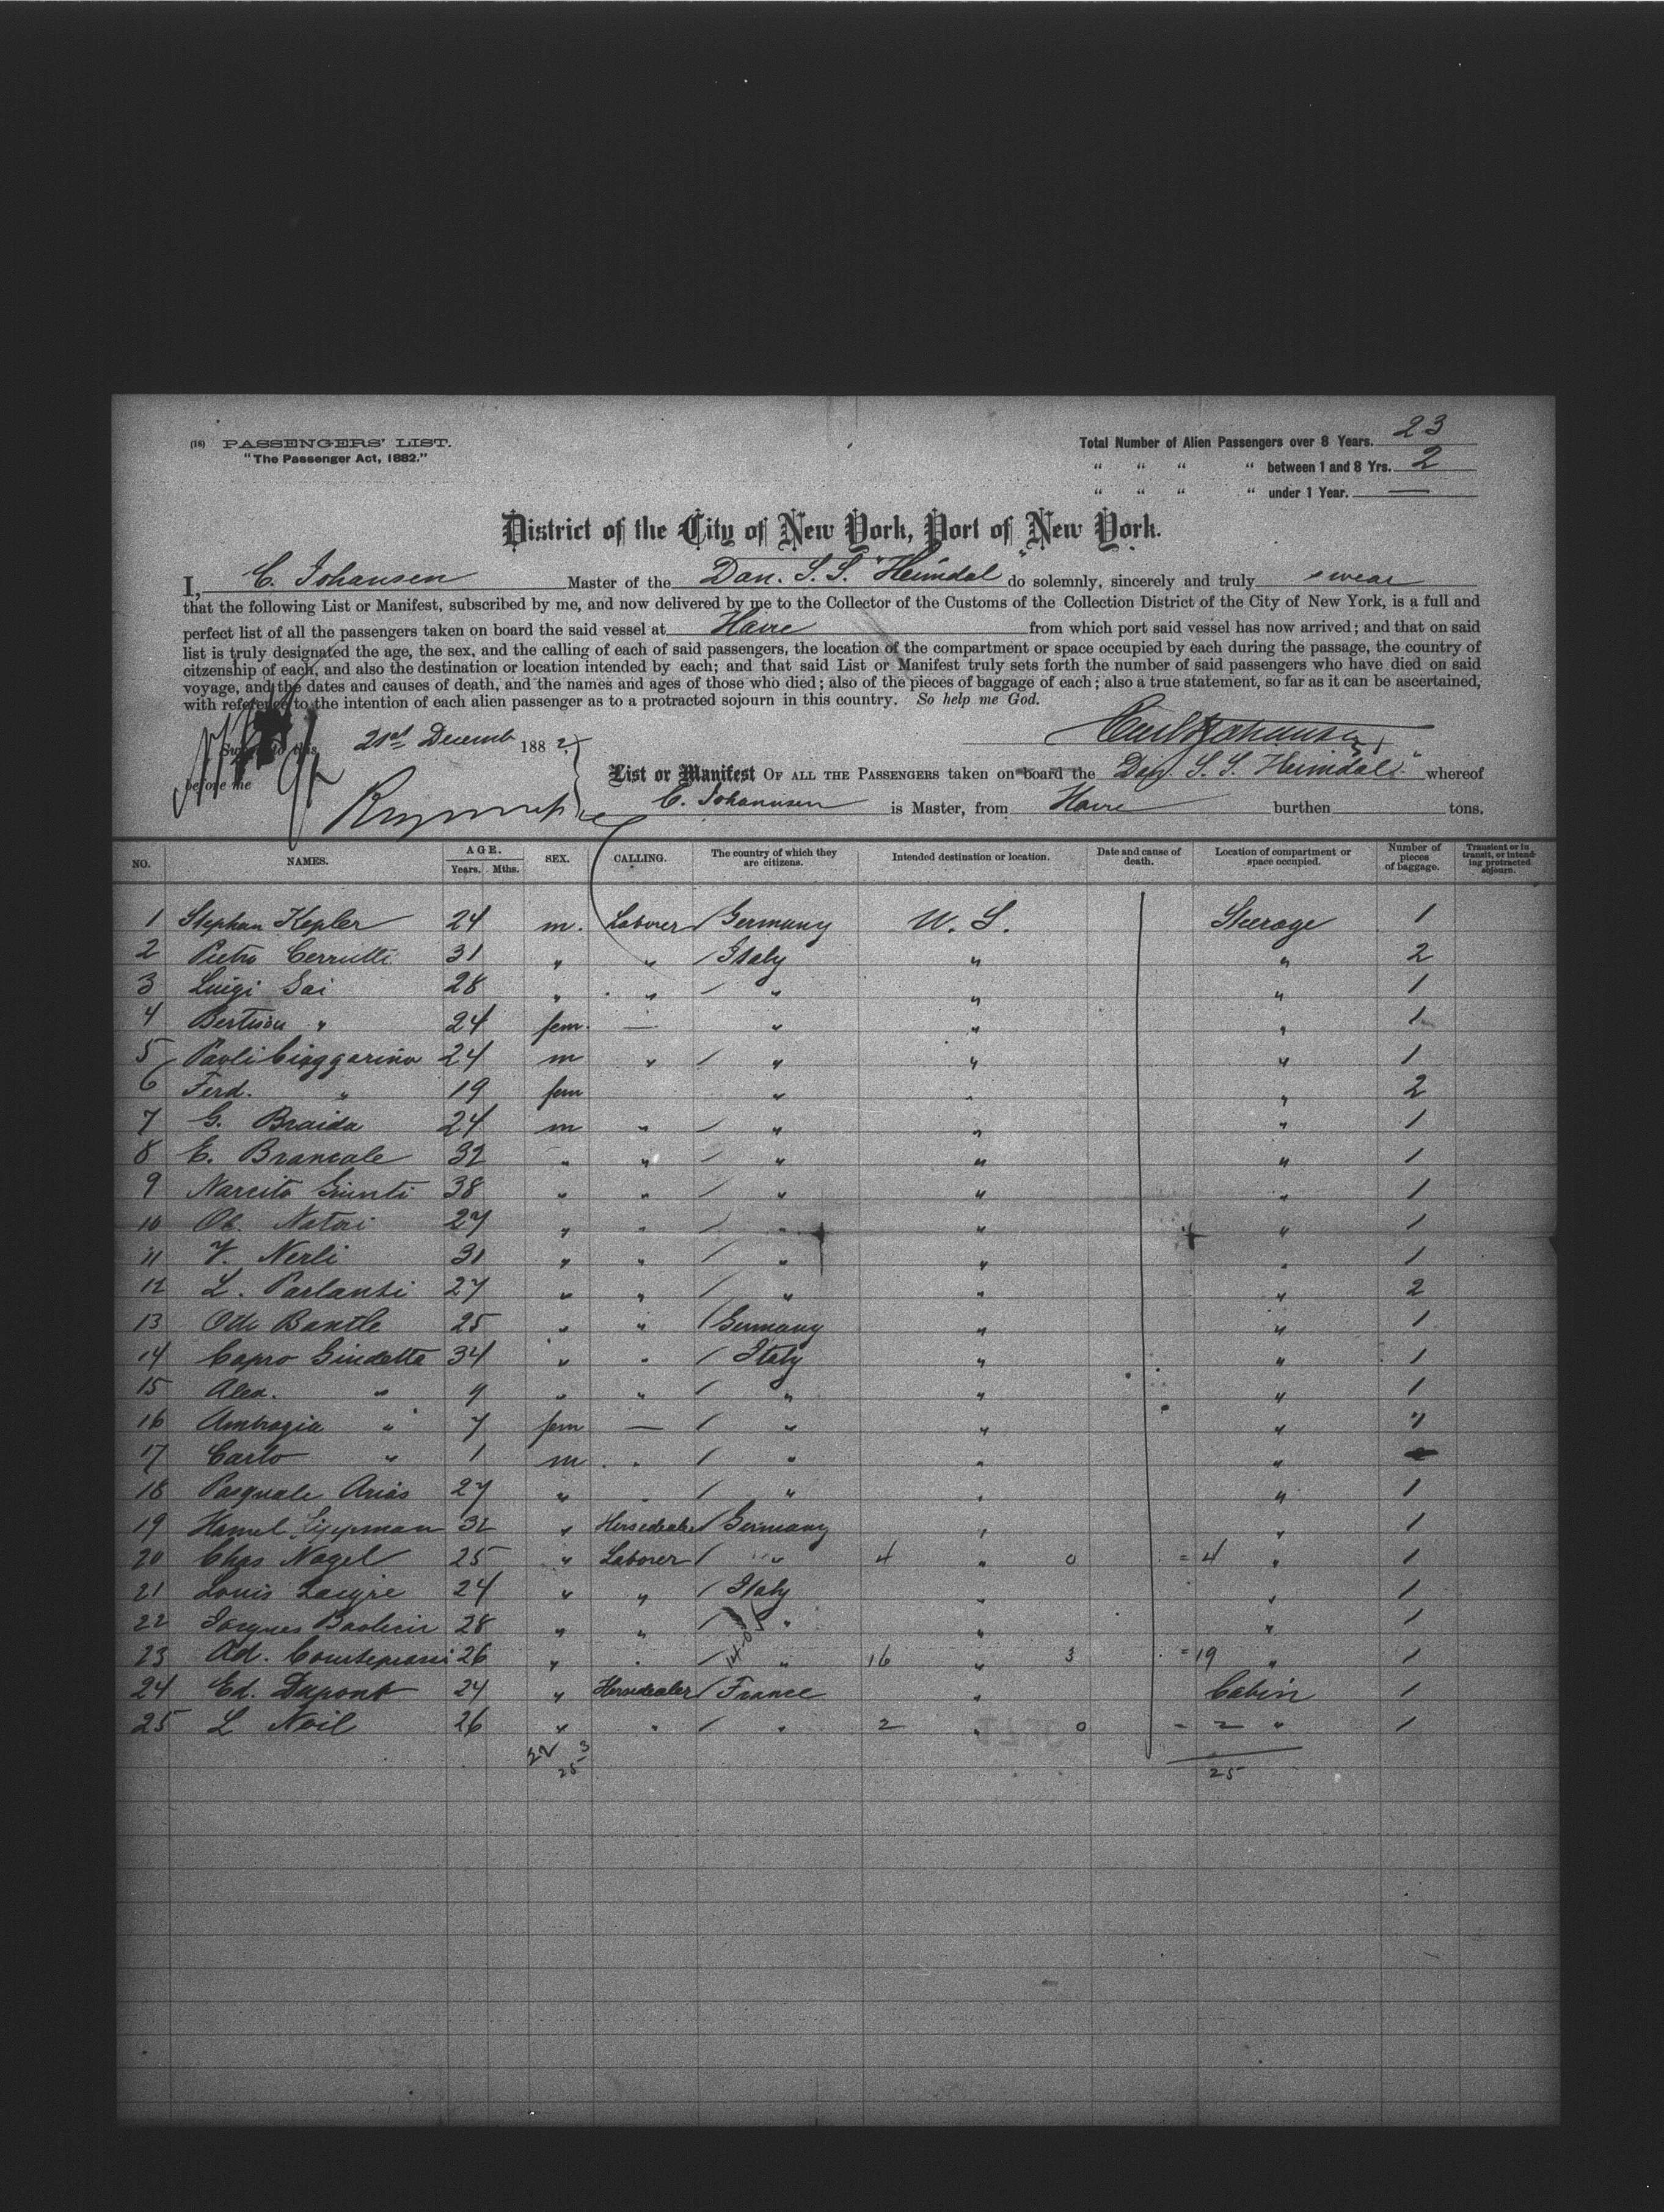 (16) PASSENGERS' LIST.
"The Passenger Act, 1882."
Total Number of Alien Passengers over 8 Years. 23
" " " " between 1 and 8 Yrs. 2
" " " " under 1 Year. —
District of the City of New York, Port of New York.
I, C. Johansen Master of the Dan. S. S. "Heimdal" do solemnly, sincerely and truly swear
that the following List or Manifest, subscribed by me, and now delivered by me to the Collector of the Customs of the Collection District of the City of New York, is a full and
perfect list of all the passengers taken on board the said vessel at Havre from which port said vessel has now arrived; and that on said
list is truly designated the age, the sex, and the calling of each of said passengers, the location of the compartment or space occupied by each during the passage, the country of
citzenship of each, and also the destination or location intended by each; and that said List or Manifest truly sets forth the number of said passengers who have died on said
voyage, and the dates and causes of death, and the names and ages of those who died; also of the pieces of baggage of each; also a true statement, so far as it can be ascertained,
with reference to the intention of each alien passenger as to a protracted sojourn in this country. So help me God.
Sworn to this 21st Decemb 1882
Carl Johansen
before me
List or Manifest OF ALL THE PASSENGERS taken on board the Dan. S. S. Heimdal" whereof
C. Johannsen is Master, from Havre burthen tons.
NO. NAMES. AGE. Years. Mths. SEX. CALLING. The country of which they are citizens. Intended destination or location. Date and cause of death. Location of compartment or space occupied. Number of pieces of baggage. Transient or in transit, or intending protracted sojourn.
1 Stephan Kepler 24 m. Laborer Germany U. S. Steerage 1
2 Pietro Cerrutti 31 " " Italy " " 2
3 Luigi Sai 28 " " " " " 1
4 " 24 fem. — " " " 1
5 Paoli Ciaggarino 24 m " " " " 1
6 Ferd. " 19 fem " " " 2
7 G. Braida 24 m " " " " 1
8 E. Brancale 32 " " " " " 1
9 Narcito Giunti 38 " " " " " 1
10 Natori 27 " " " " " 1
11 V. Nerli 31 " " " " " 1
12 L. Parlanti 27 " " " " " 2
13 Otto Bantle 25 " " Germany " " 1
14 Capro Gindetta 34 " " Italy " " 1
15 Alex. " 9 " " " " " 1
16 Ambrogia " 7 fem — " " " "
17 Carlo " 1 m " " " "
18 Pasquale Arias 27 " " " " " 1
19 Hamel Lippman 32 " Horsedealer Germany " " 1
20 Chas Nagel 25 " Laborer " 4 " 0 = 4 " 1
21 Louis 24 " " Italy " " 1
22 28 " " " " " 1
23 Ad. 26 " " " 16 " 3 = 19 " 1
24 Ed. Dupont 24 " Horsedealer France " Cabin 1
25 L Noil 26 " " " 2 " 0 - 2 " 1
22 3
25
25